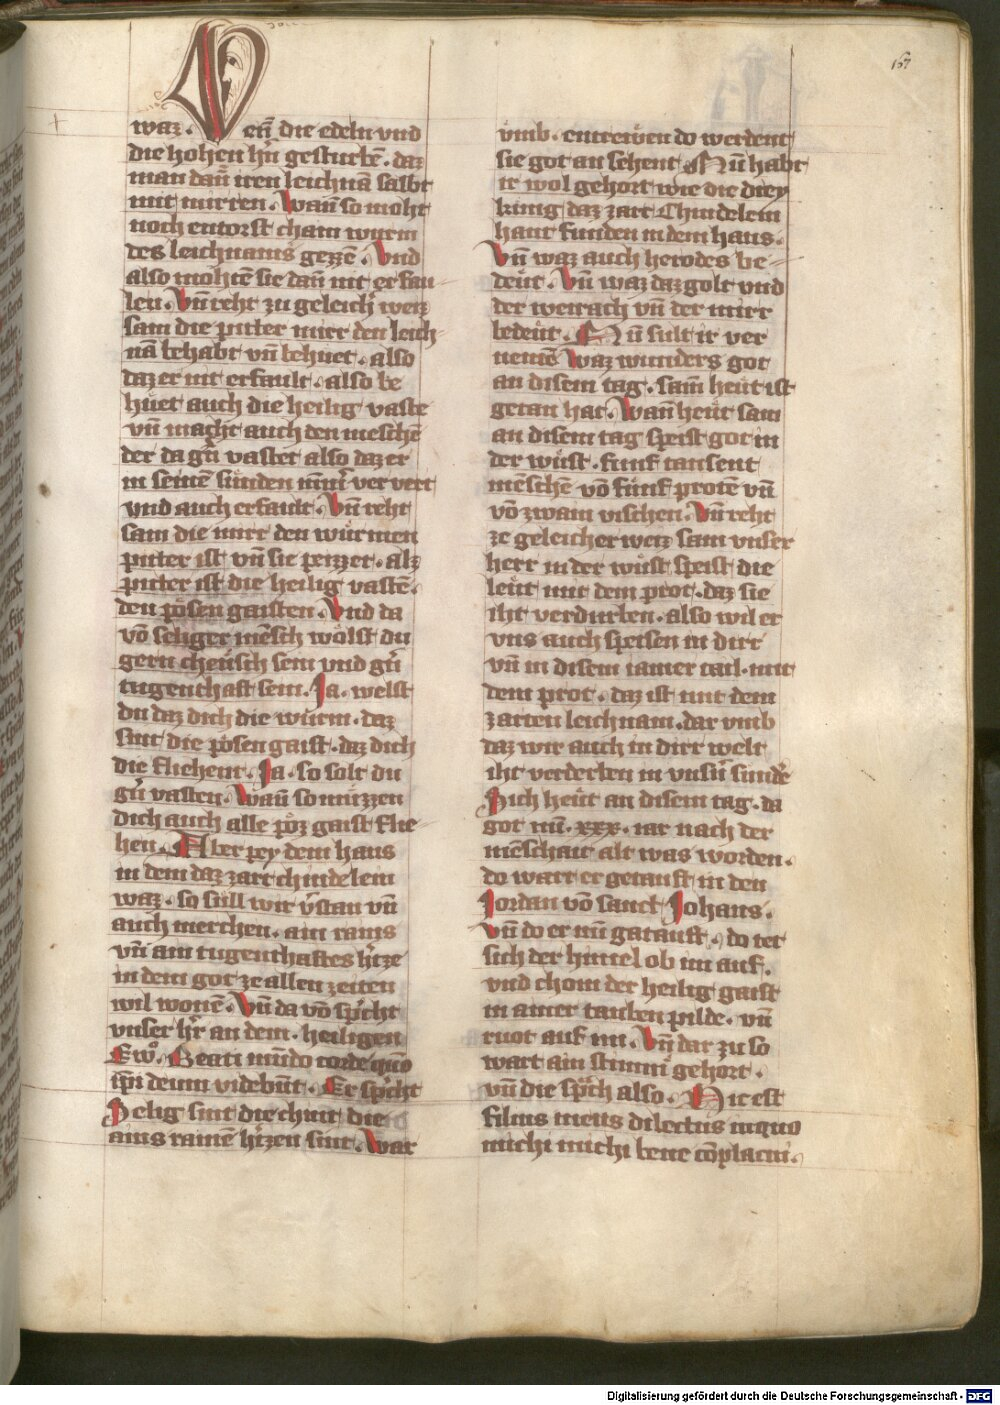 167
waz. Wen̄ die edeln vnd
die hohen h̄n gesturbē. daz
man dan̄ iren leichnā salbt
mit mirren. Wan̄ so moht
noch entorst cham wurm
des leichnams gezzē. Vnd
also mohtē sie dan̄ nit er fau
len. Vn̄ reht zu geleich̄ weiz
sam die pitter mirr den leich
nā behabt vn̄ behuet. also
daz er nit erfault. also be
hüet auch die heilig vaste
vn̄ macht auch den meschē
der da gn̄ vastet also daz er
in seinē sünden nim̄ ver vert
vnd auch erfault. Vn̄ reht
sam die mirr den würmen
pitter ist vn̄ sie peizzet. alz
pitter ist die heilig vastē.
den pösen gaisten. Vnd da
vō seliger mēsch wölst du
gern cheüsch sein vnd gn̄
tugenthaft sein. Ja. welst
du daz dich die würm. daz
sint die pösen gaist. daz dich
die flichent. Ja. so solt du
gn̄ vasten. Wan̄ so müzzen
dich auch alle pöz gaist flie
hen. Aber pey dem haus
in dem daz zart chindelein
waz. so süll wir v̄stan vn̄
auch merchen. ain rains
vn̄ ain tugenthaftes h̄tze
in dem got ze allen zeiten
wil wonē. Vn̄ da vō sp̄cht
vnser h̄r an dem. heiligen
Ew̄o. Beati mūdo corde quō
ip̄i deum videbūt. Er sp̄cht
Selig sint die chint die
ains rainē h̄tzen sint. War
vmb. entrewen do werdent
sie got an sehent. Nū habt
ir wol gehort wie die drey
künig daz zart Chindelein
hant funden in dem haus.
Vn̄ waz auch herodes be-
deüt. Vn̄ waz daz golt vnd
der weirach vn̄ der mirr
bedeüt. Nū sült ir ver
nemē waz wunders got
an disem tag. sam heüt ist
getan hat. Wan̄ heüt sam
an disem tag speist got in
der wüst. fünf tausent
mēschē vō fünf protē vn̄
vō zwain vischen. Vn̄ reht
ze geleicher weiz sam vnser
herr in der wüst speist die
leüt mit dem prot. daz sie
iht verdurben. also wil er
vns auch speisen in dirr
vn̄ in disem iamer tail. mit
dem prot. daz ist mit dem
zarten leichnam. dar vmb
daz wir auch in dirr welt
iht verderben in vnsn̄ sündē
Sich heüt an disem tag. da
got nū. xxx. iar nach der
mēschait alt was worden.
do wart er getauft in den
Jordan vō sanct Johans.
Vn̄ do er nū gatauft. do tet
sich der himel ob im auf.
vnd chom der heilig gaist
in ainer tauben pilde. vn̄
ruot auf im. Vn̄ dar zu so
wart ain stimm gehort.
vn̄ die sp̄ch also. Hic est
filius meus dilectus in quo
michi michi bene cōplacui.
Digitalisierung gefördert durch die Deutsche Forschungsgemeinschaft - DFG